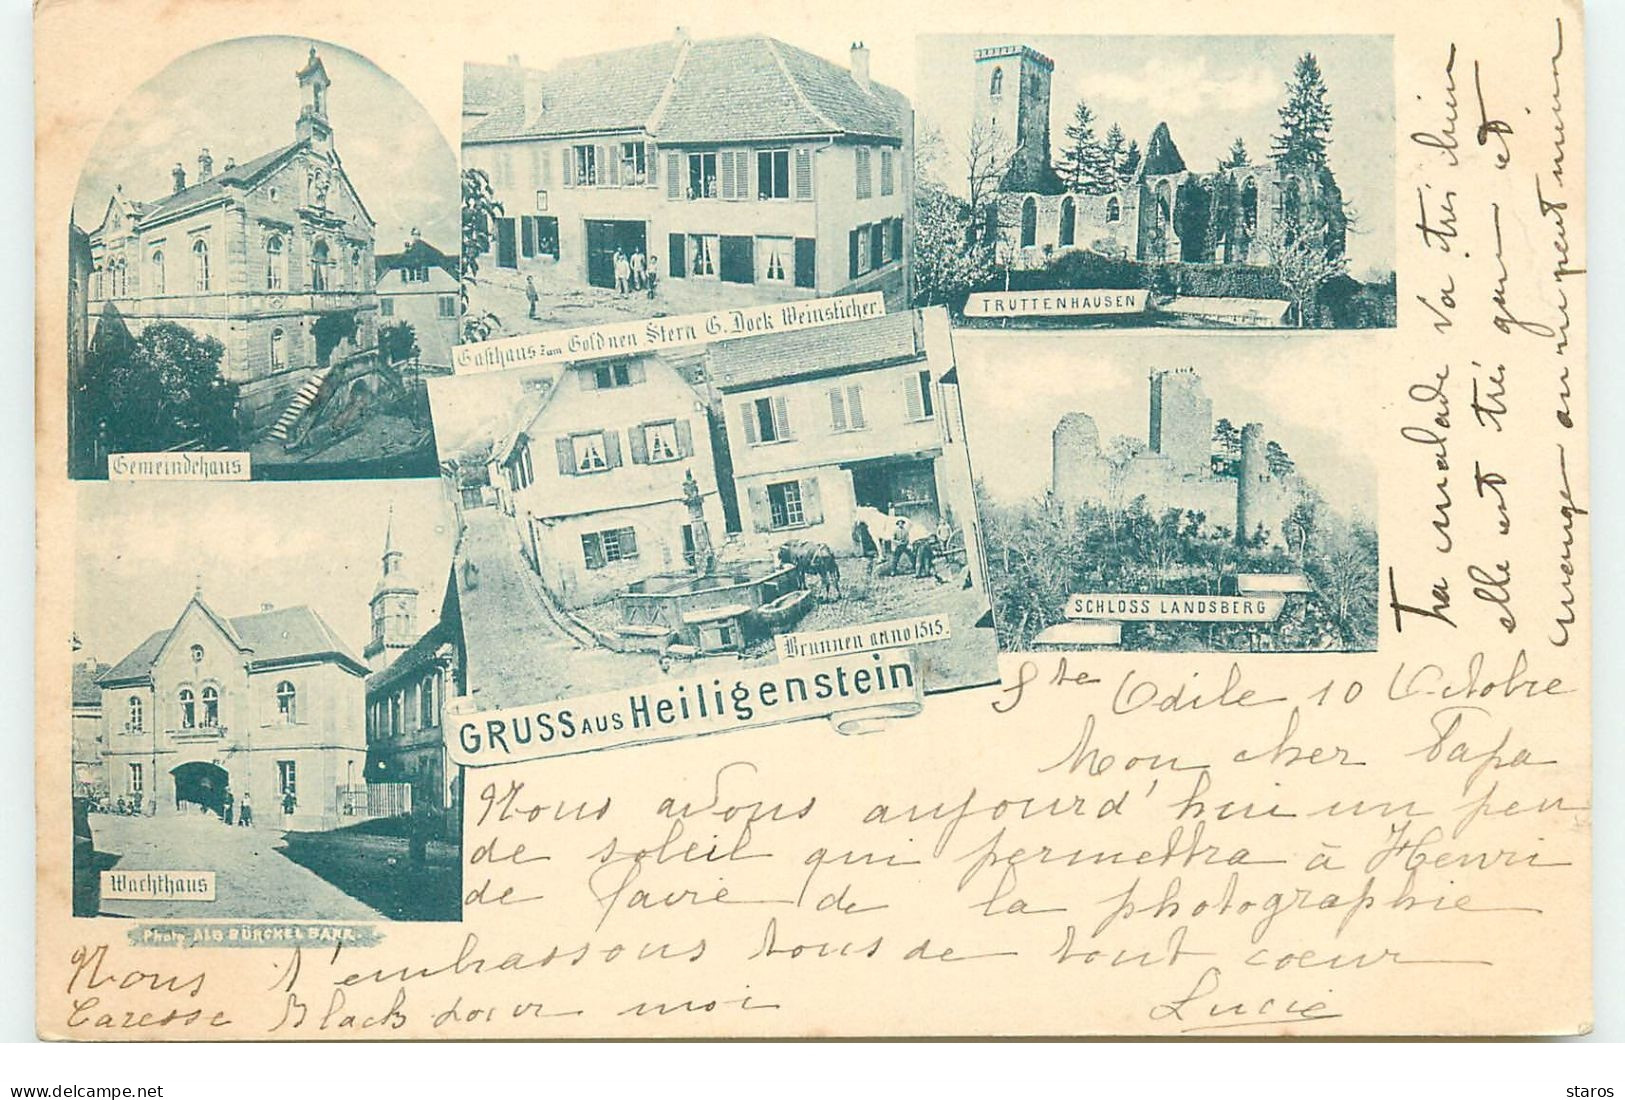 Gemeindehaus
Gasthaus zum Goldnen Stern G. Dock Weinsticher.
TRUTTENHAUSEN
SCHLOSS LANDSBERG
Brunnen anno 1515.
Wachthaus
Photo ALB BÜRCKEL BARR.
GRUSS AUS Heiligenstein
Ste Odile 10 Octobre
Mon cher Papa
Nous avons aujourd'hui un peu
de soleil qui permettra à Henri
de faire de la photographie
Nous t'embrassons tous de tout coeur
Caresse Black pour moi
Lucie
Ta malade va très bien
elle est très gaie et
mange on ne peut mieux
staros